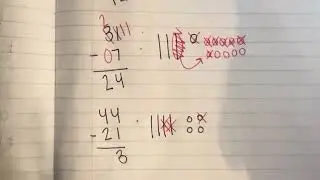 2
3 1 11
- 0 7
24
44
- 21
3